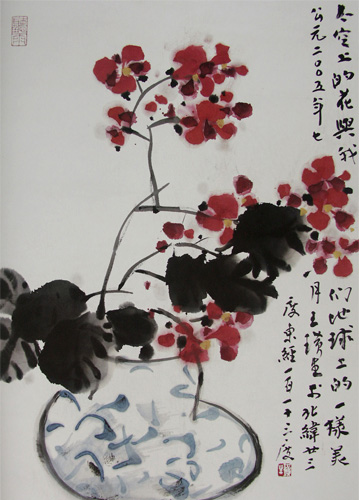 太空上的花與我
們地球上的一樣美
公元二〇〇五年七
月王璜生於北緯廿三
度東經一百一十三度